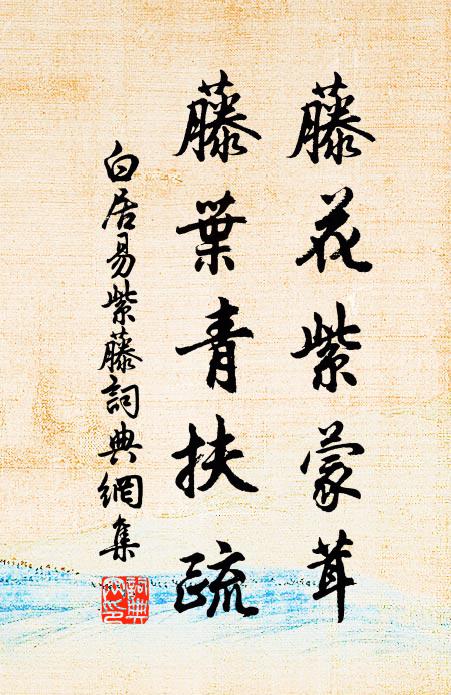 藤花紫蒙茸
藤葉青扶疏
白居易紫藤詞典網集